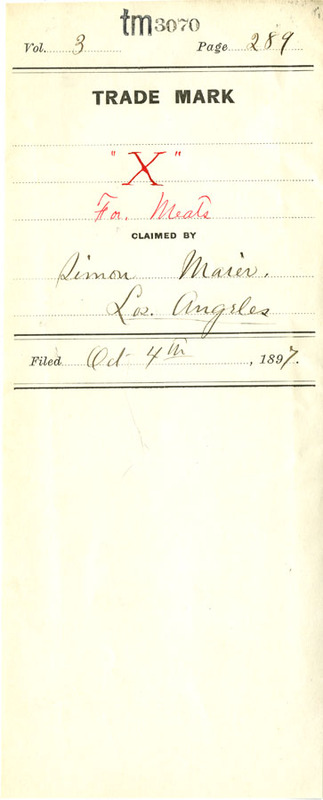 tm3070
Vol. 3 Page 289
TRADE MARK
"X"
For Meats
CLAIMED BY
Simon Maier.
Los Angeles
Filed Oct 4th, 1897.